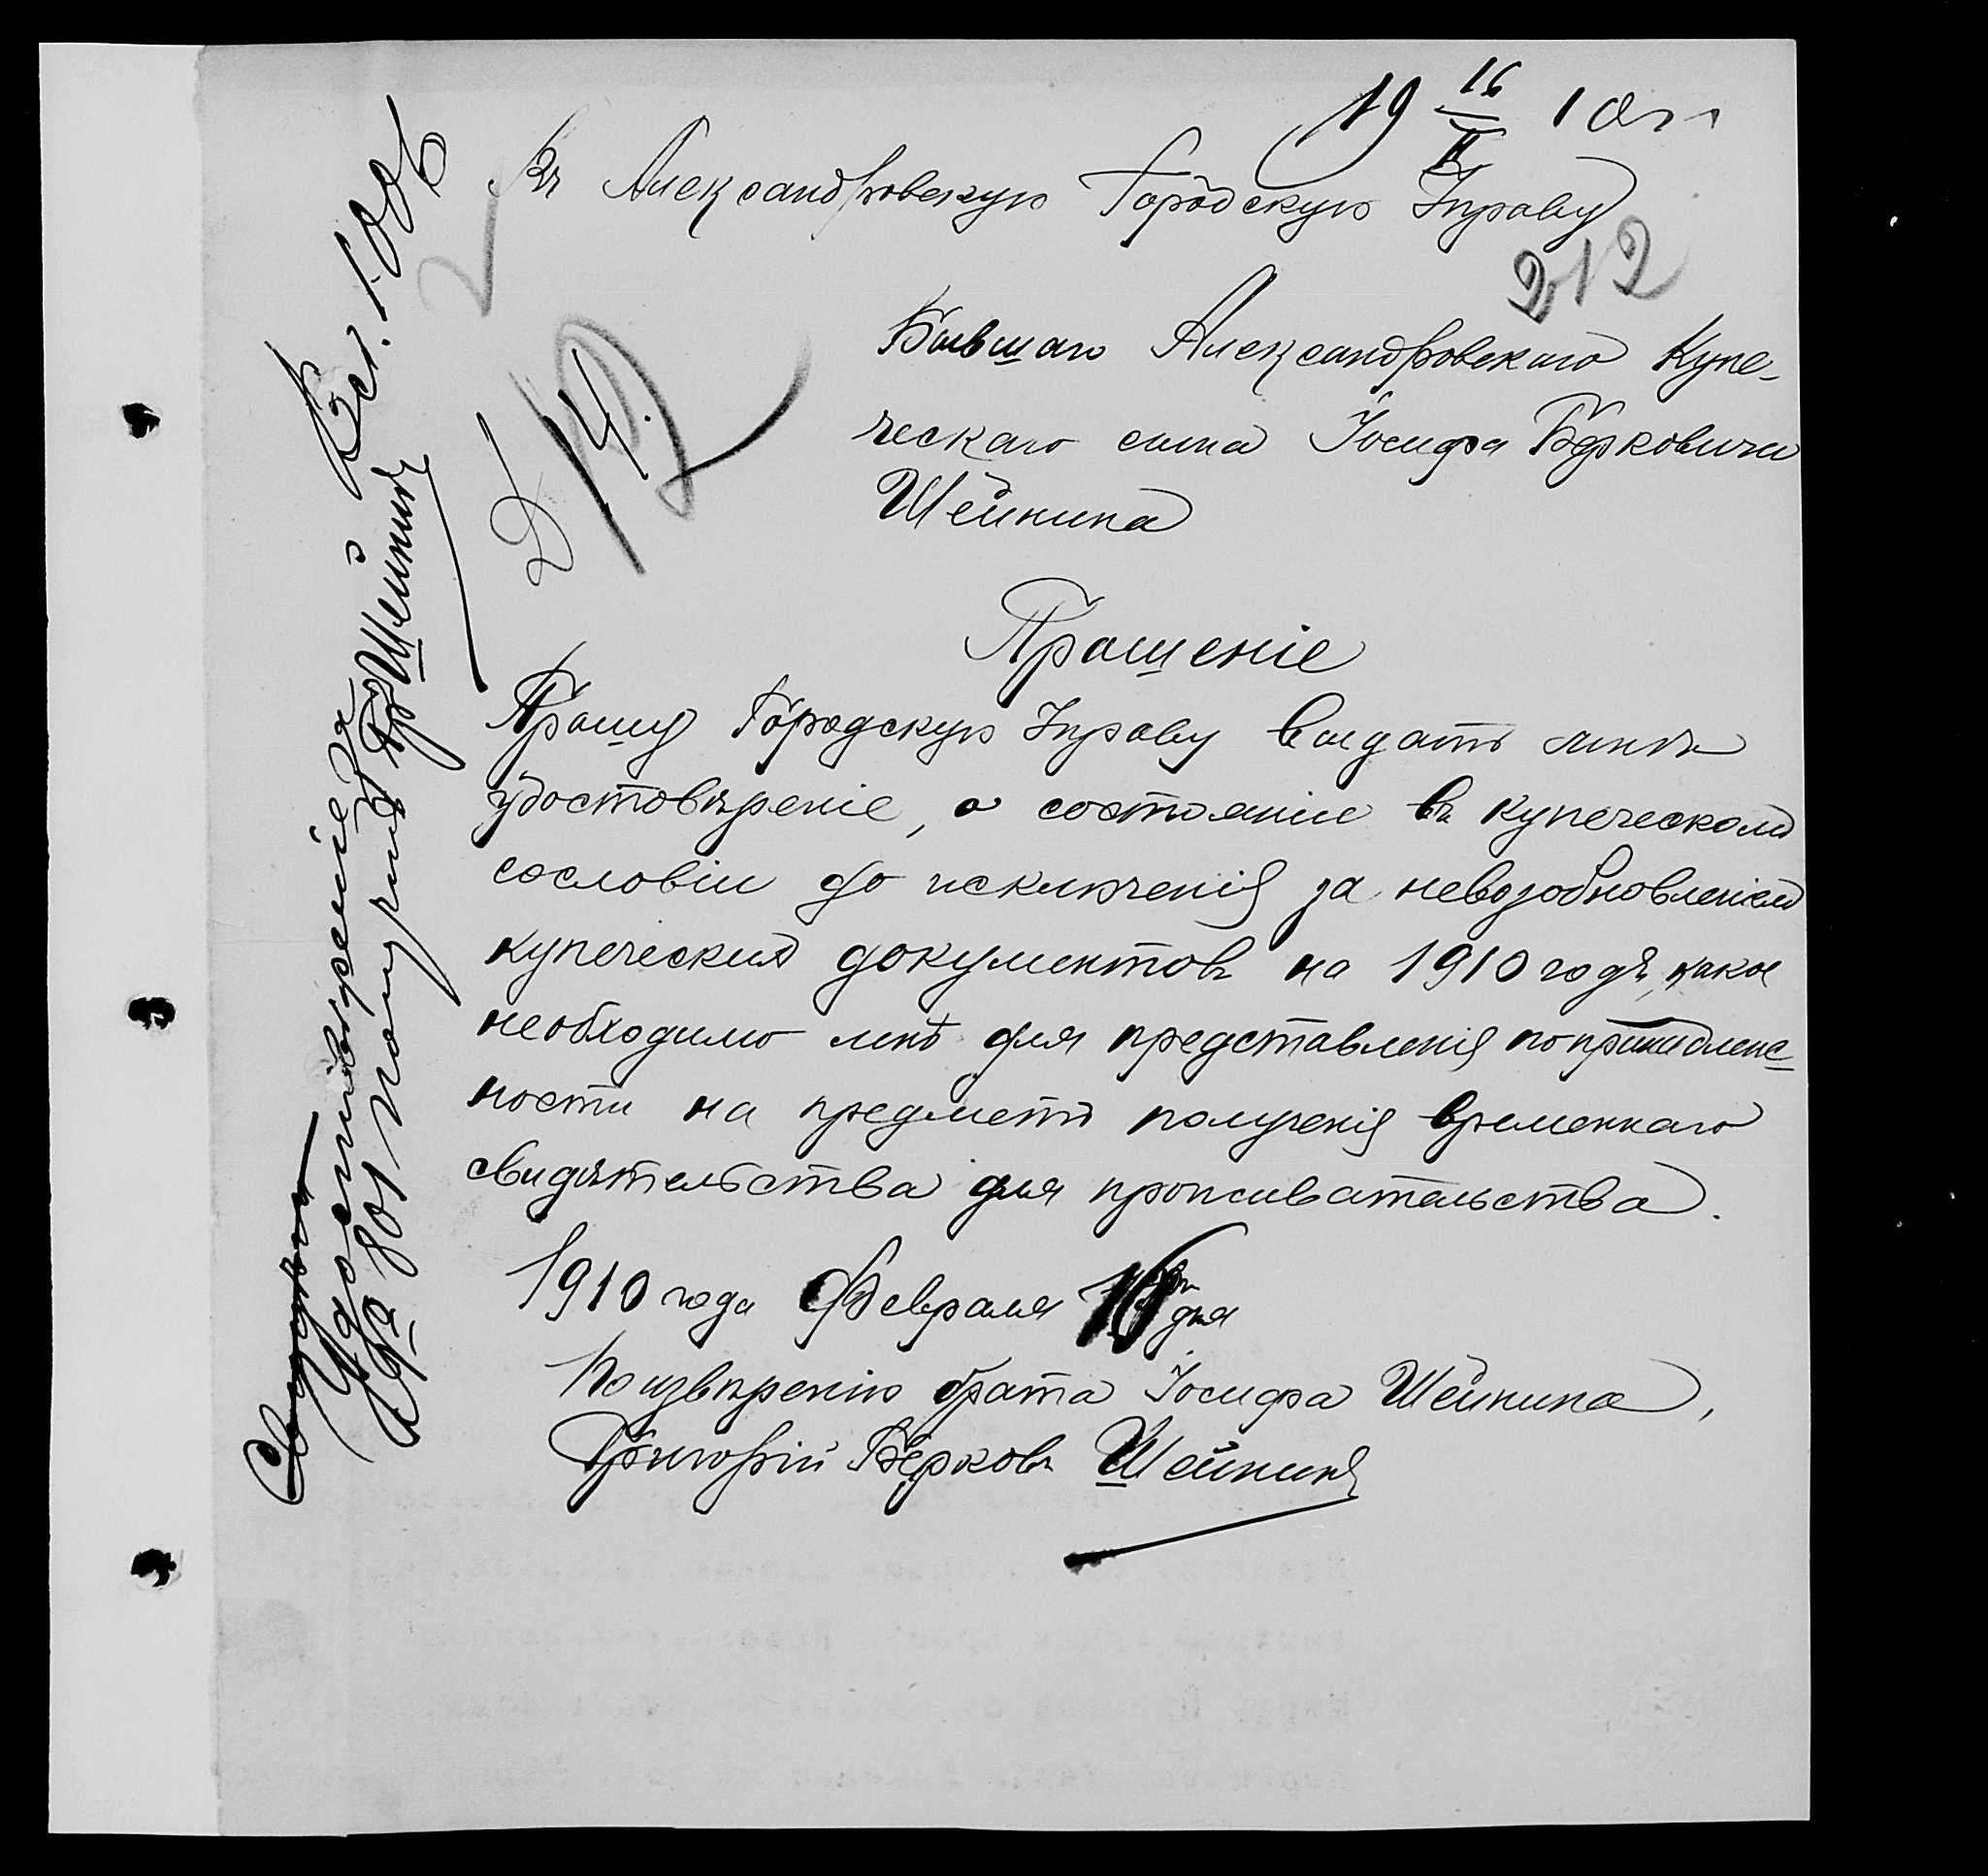 19 16/II 10 г.
Въ Александровскую Городскую Управу
212
Бывшаго Александровскаго Купе-
ческаго сына Іосифа Берковича
Шейнина
Д 14.
Прошеніе
Прошу Городскую Управу выдать мнѣ
удостовѣреніе, о состояніи въ купеческомъ
сословіи до исключенія за невозобновленіемъ
купеческихъ документовъ на 1910 годъ, какое
необходимо мнѣ для представленія по принадлеж-
ности на предметъ полученія временнаго
свидѣтельства для проживательства.
1910 года Февраля 16 дня
По извѣренію брата Іосифа Шейнина,
Григорій Берковъ Шейнинъ
Вст. 1006
Удостовѣреніе за
№ 801 получилъ Гр Шейнинъ